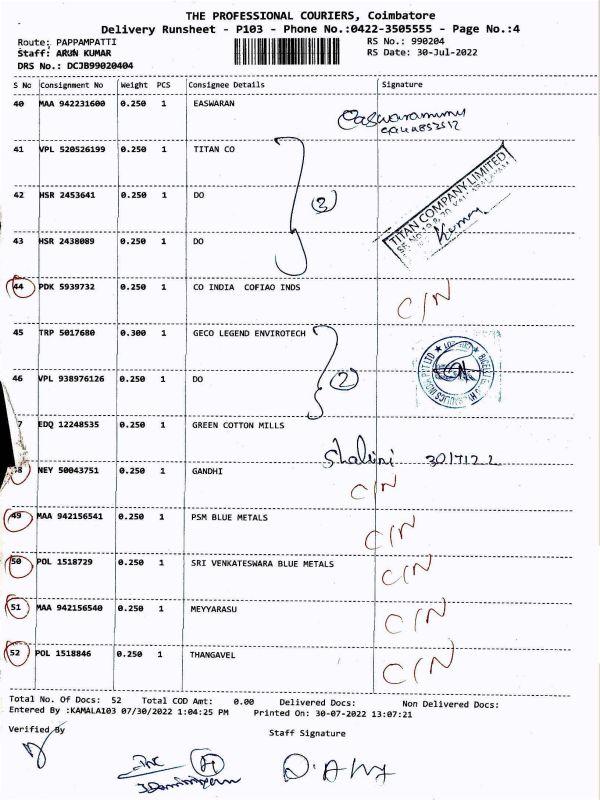 THE PROFESSIONAL COURIERS, Coimbatore
Delivery Runsheet - P103 - Phone No.:0422-3505555 - Page No.:4
Route: PAPPAMPATTI RS No.: 990204
Staff: ARUN KUMAR RS Date: 30-Jul-2022
DRS No.: DCJB99020404
S No Consignment No Weight PCS Consignee Details Signature
40 MAA 942231600 0.250 1 EASWARAN
41 VPL 520526199 0.250 1 TITAN CO
TITAN COMPANY LIMITED
42 HSR 2453641 0.250 1 DO (3)
43 HSR 2438089 0.250 1 DO
44 PDK 5939732 0.250 1 CO INDIA COFIAO INDS C/N
45 TRP 5017680 0.300 1 GECO LEGEND ENVIROTECH
46 VPL 938976126 0.250 1 DO (2)
7 EDQ 12248535 0.250 1 GREEN COTTON MILLS
Shalini 30/7/22
48 NEY 50043751 0.250 1 GANDHI C/N
49 MAA 942156541 0.250 1 PSM BLUE METALS C/N
50 POL 1518729 0.250 1 SRI VENKATESWARA BLUE METALS C/N
51 MAA 942156540 0.250 1 MEYYARASU C/N
52 POL 1518846 0.250 1 THANGAVEL C/N
Total No. Of Docs: 52 Total COD Amt: 0.00 Delivered Docs: Non Delivered Docs:
Entered By :KAMALA103 07/30/2022 1:04:25 PM Printed On: 30-07-2022 13:07:21
Verified By Staff Signature